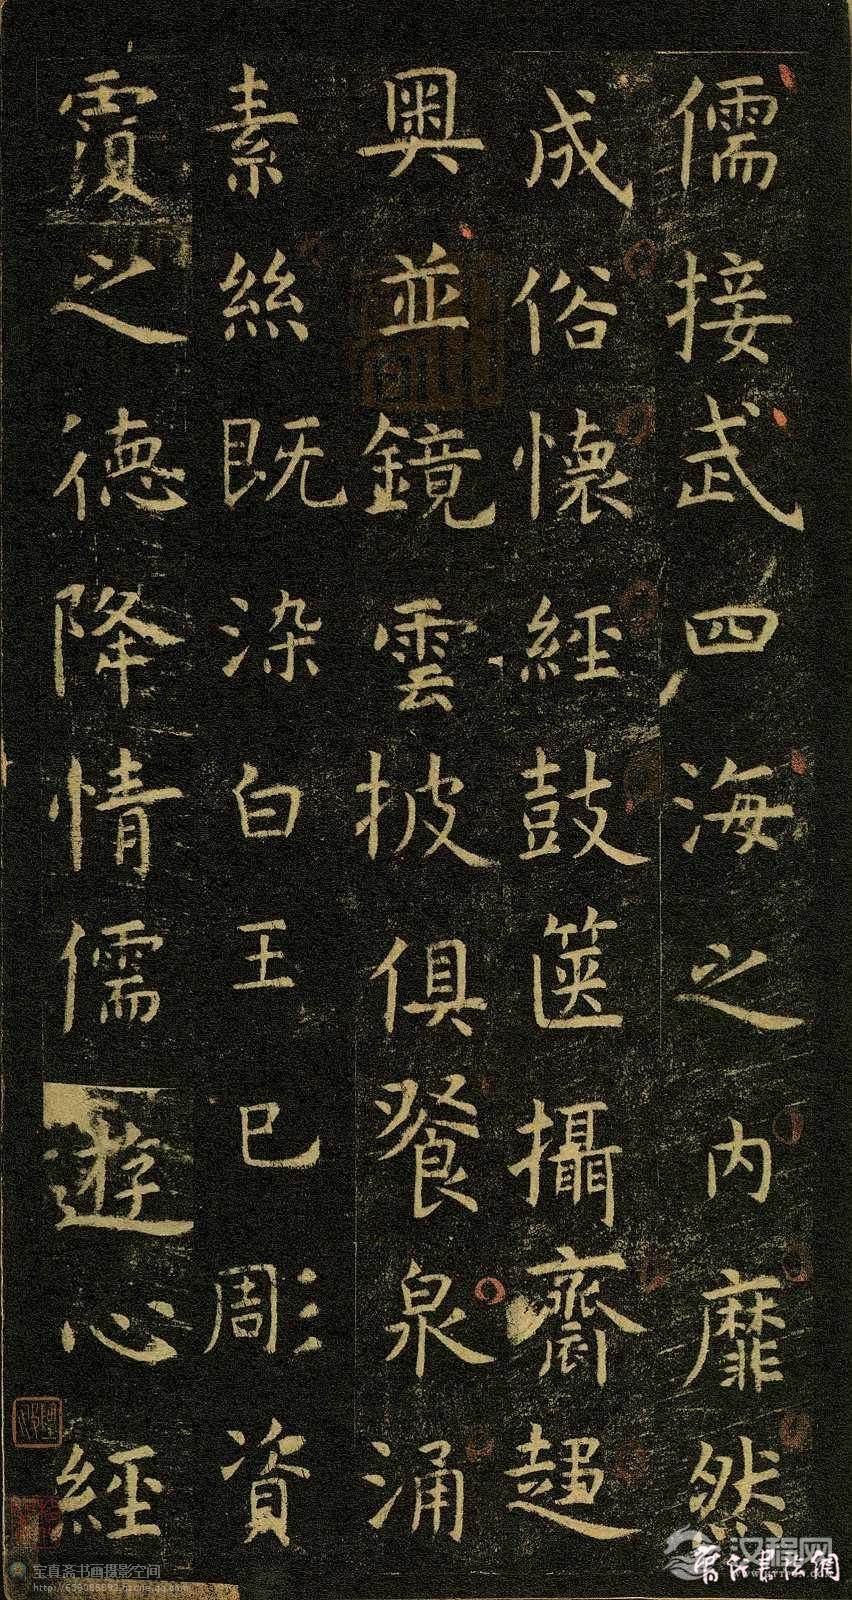 儒接武四海之内靡然
成俗懷經鼓篋攝齋趍
奧並鏡雲披俱餐泉涌
素絲既染白玉已彫資
覆之德降情儒遊心經
宝真斋书画摄影空间
汉程网